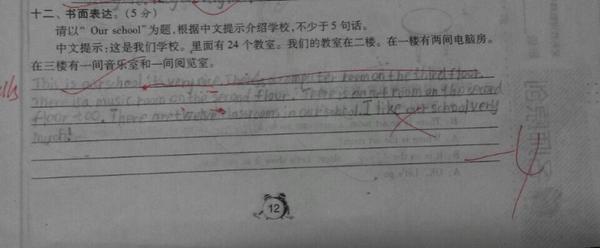 十二、书面表达。(5分)
请以“Our school”为题,根据中文提示介绍学校,不少于5句话。
中文提示:这是我们学校。里面有24个教室。我们的教室在二楼。在一楼有两间电脑房。
在三楼有一间音乐室和一间阅览室。
This is our school. It's very nice. There is a computer room on the third floor.
There is a music room on the second floor. There is an art room on the second
floor too. There are twelve classroom in our school. I like our school very
much!
12